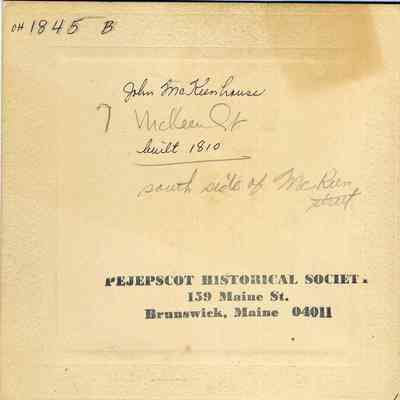 OH 1845 B
John McKeen house
7 McKeen St
built 1810
south side of McKeen
street
PEJEPSCOT HISTORICAL SOCIET
159 Maine St.
Brunswick, Maine 04011